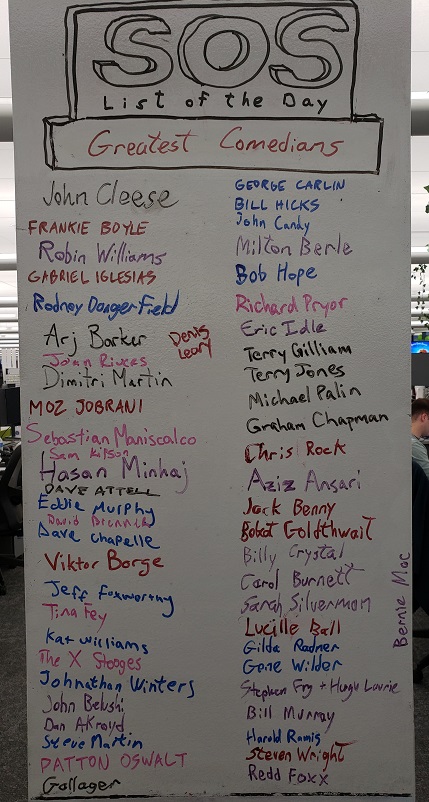 SOS
List of the Day
Greatest Comedians
John Cleese
FRANKIE BOYLE
Robin Williams
GABRIEL IGLESIAS
Rodney Dangerfield
Arj Barker
Denis
Leary
Joan Rivers
Dimitri Martin
MOZ JOBRANI
Sebastian Maniscalco
Sam Kilson
Hasan Minhaj
DAVE ATTELL
Eddie Murphy
David
Dave Chapelle
Viktor Borge
Jeff Foxworthy
Tina Fey
Kat Williams
The X Stooges
Johnathan Winters
John Belushi
Dan AKroyd
Steve Martin
PATTON OSWALT
Gollager
GEORGE CARLIN
BILL HICKS
John Candy
Milton Berle
Bob Hope
Richard Pryor
Eric Idle
Terry Gilliam
Terry Jones
Michael Palin
Graham Chapman
Chris Rock
Aziz Ansari
Jack Benny
Bobat Goldthwait
Billy Crystal
Carol Burnett
Sarah Silverman
Lucille Ball
Gilda Radner
Gene Wilder
Stephen Fry + Hugh Laurie
Bill Murray
Harold Ramis
Steven Wright
Redd Foxx
Bernie Mac